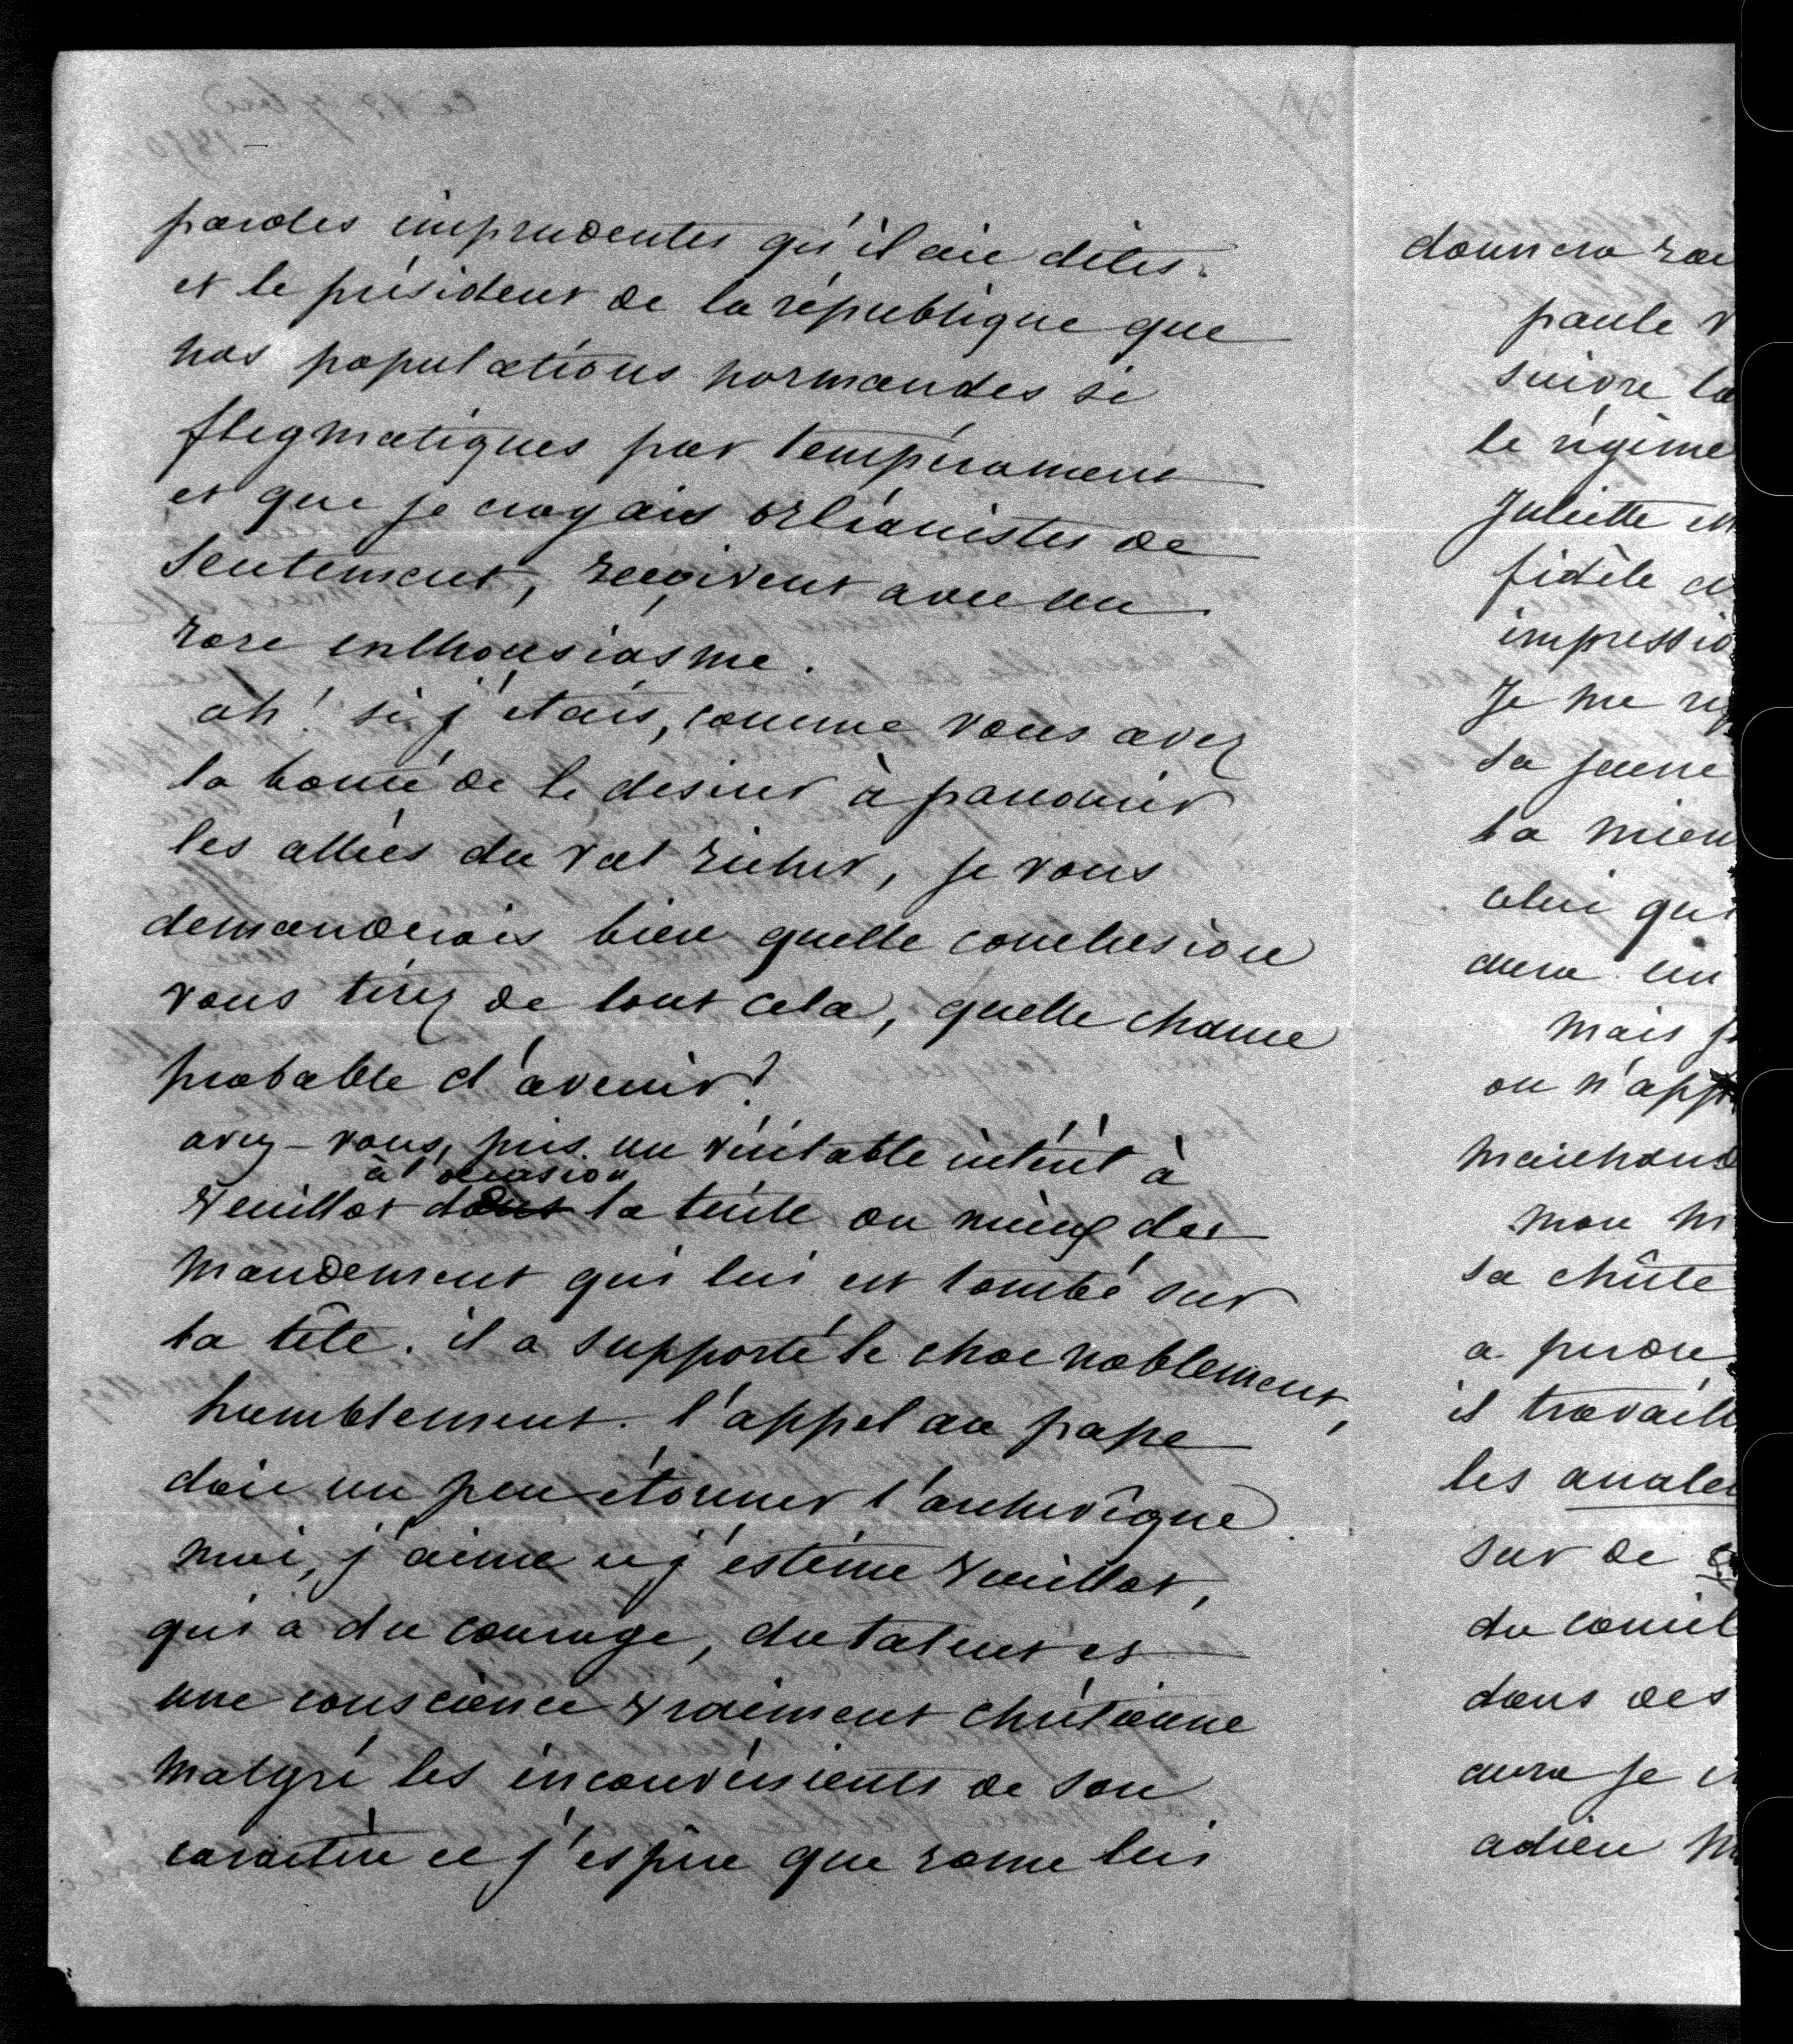 paroles imprudentes qu'il aie dites.
et le président de la république que
nos populations normandes si
flegmatiques par tempérament
et que je croyais orléanistes de
sentement, reçoivent avec un
rare enthousiasme.
ah! si j'étais, comme vous avez
la bonté de le desirer à parcourir
les allées du val richer, je vous
demanderais bien quelle conclusion
vous tirez de tout cela, quelle chance
probable d'avenir?
avez-vous, pris un véritable intérêt à
à l'occasion
Veuillot dans la tuile ou mieux du
mandement qui lui est tombé sur
la tête. il a supporté le choc noblement,
humblement. l'appel au pape
doit un peu étonner l'archevêque
moi, j'aime et j'estime Veuillot,
qui a du courage, du talent et
une conscience vraiment chrétienne
malgré les inconvénients de son
caractère et j'espère que rome lui
donnera
paule
suivre la
le régime
Juliette
fidèle
impressio
Je me
sa jeune
la mien
celui qui
aura un
mais je
on n'app
marchand
mon
sa chûte
a perdre
il travaill
les analec
sur de
du concil
dans des
aura je
adieu